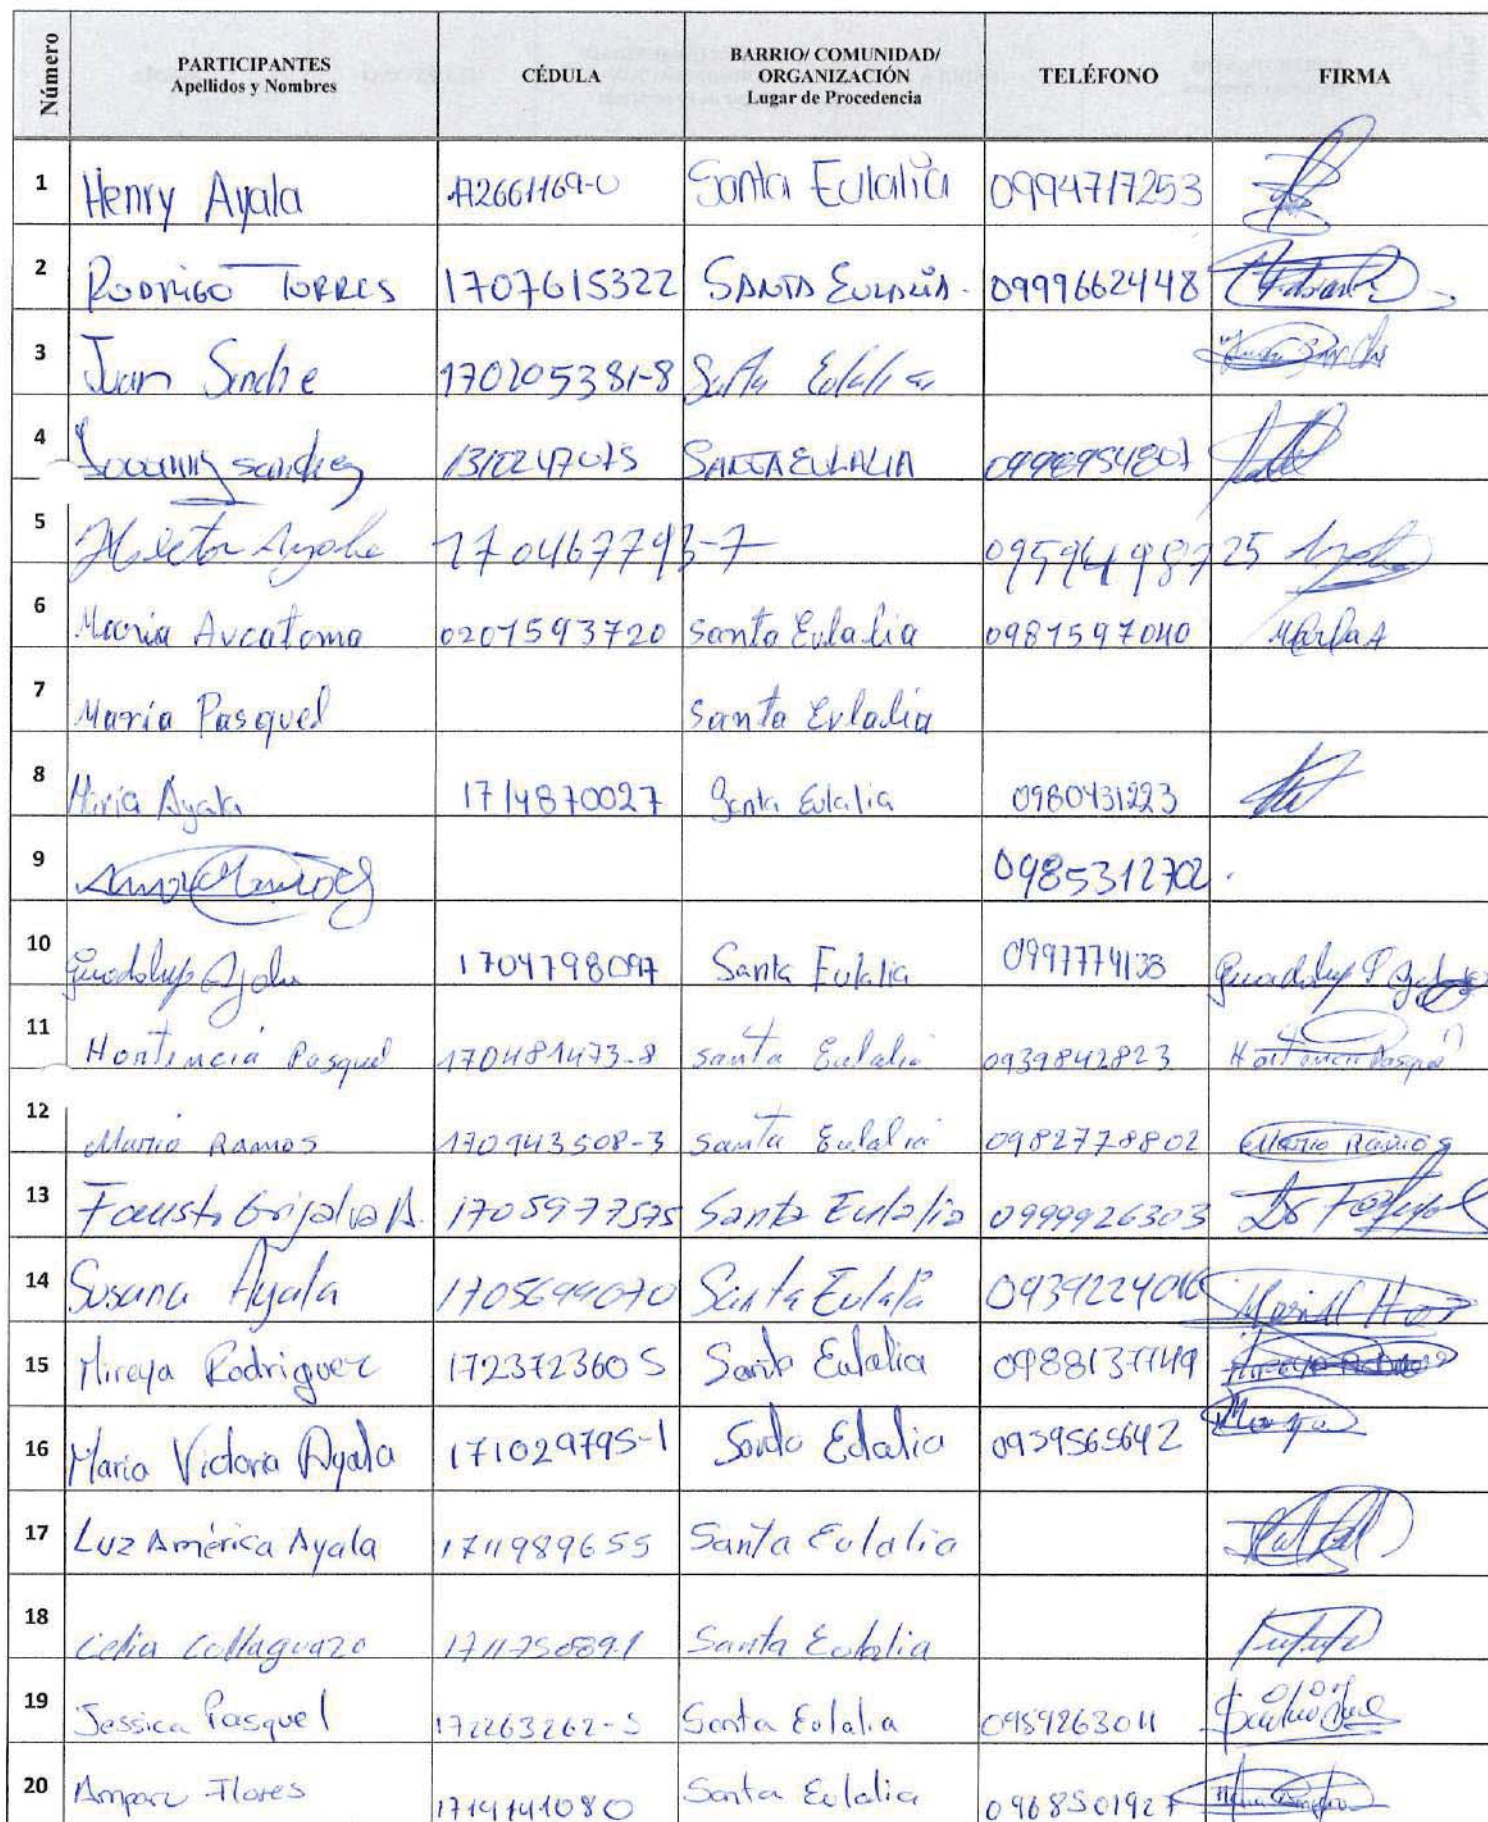 Número PARTICIPANTES Apellidos y Nombres CÉDULA BARRIO/ COMUNIDAD/ ORGANIZACIÓN Lugar de Procedencia TELÉFONO FIRMA
1 Henry Ayala 172661169-0 Santa Eulalia 0994717253
2 RODRIGO TORRES 1707615322 SANTA EULALIA. 0999662448
3 Juan 170205381-8 Santa Eulalia
4 sanchez SANTA EULALIA
5 Hector Ayala 170467793-7
6 Maoria Aucatoma 0201593720 Santa Eulalia 0981597040 María A
7 María Pasquel Santa Eulalia
8 Ayala 1714870027 Santa Eulalia 0980431223
9 0985312702.
10 Guadalup Ayala 1704798097 Santa Eulalia Guadalup
11 Hortencia Pasquel 170481473-8 santa Eulalia 0939842823 Hortencia Pasquel
12 Mario Ramos 170943508-3 santa Eulalia 0982778802 Mario Ramos
13 Fausto Grijalva A. 1705977575 Santa Eulalia 0999926303
14 Susana Ayala Santa Eulalia
15 Mireya Rodriguez 1723723605 Santa Eulalia
16 Maria Victoria Ayala 171029795-1 Santa Eulalia 0939565642
17 Luz América Ayala 1711989655 Santa Eulalia
18 Celia Collaguazo Santa Eulalia
19 Jessica Pasquel 172263262-5 Santa Eulalia 0959263011
20 Amparo Flores 1714141080 Santa Eulalia 0968501927